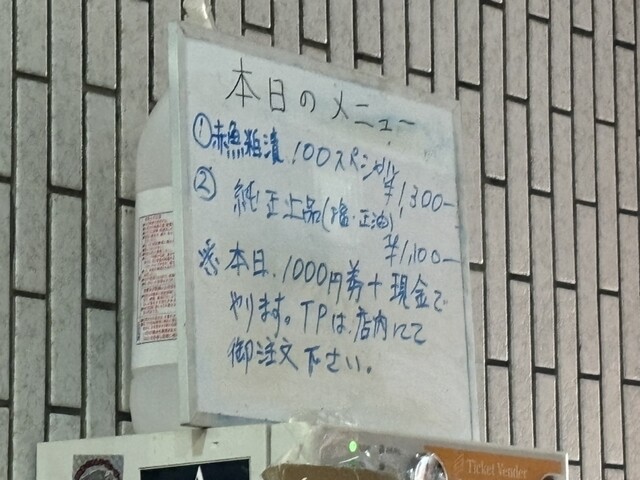 本日のメニュー
①赤魚粕漬 100スペシャル
¥1,300-
② 純正上品(塩・正油)
¥1,100-
※本日、1000円券+現金で
やります。TPは店内にて
御注文下さい。
Ticket Vender